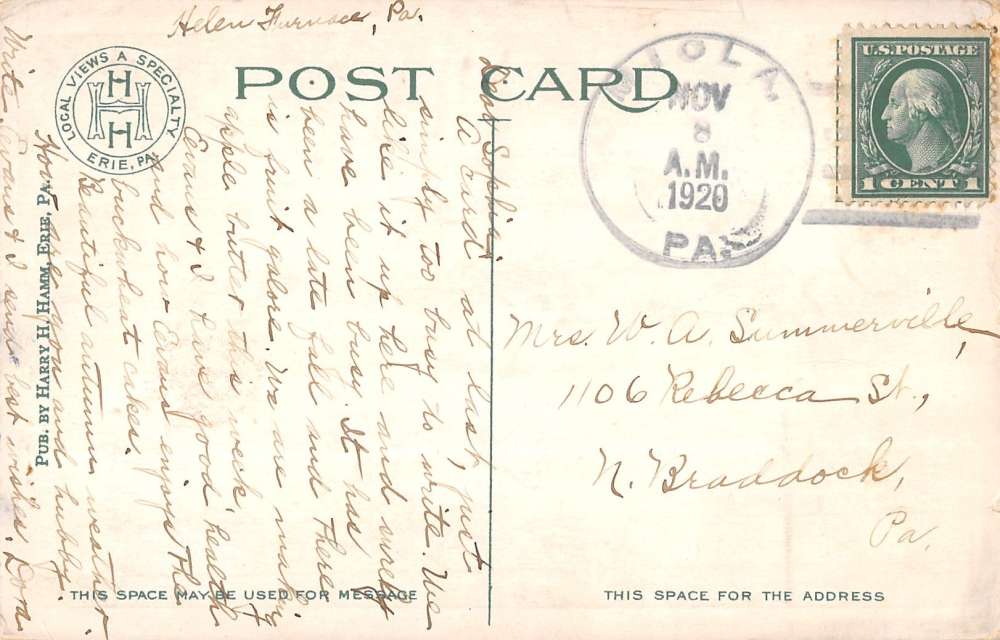 Helen Furnace, Pa.
LOCAL VIEWS A SPECIALTY
H H H
ERIE, PA.
POST CARD
LOLA.
NOV
8
A.M.
1920
PA.
U.S. POSTAGE
1 CENT 1
Dear Sophie;
A card at last, just
simply too busy to write. We
like it up here and surely
have been busy. It has
been a late fall and there
is fruit galore. We are making
apple butter this week.
Evans & I have good health
and how Evans enjoys the
buckwheat cakes.
Beautiful autumn weather.
How are you and hubby.
Write. Evans & I send best wishes. Dora
PUB. BY HARRY H. HAMM, ERIE, PA.
Mrs. W. A. Summerville,
1106 Rebecca St.,
N. Braddock,
Pa.
THIS SPACE MAY BE USED FOR MESSAGE
THIS SPACE FOR THE ADDRESS